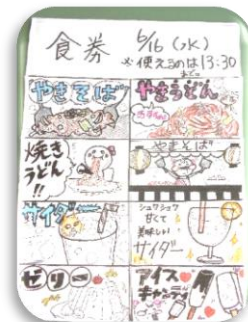 食券 6/16(水)
※使えるのは13:30
まで
やきそば
やきうどん
焼き
うどん!!
やきそば
サイダー
シュワシュワ
甘くて
美味しい
サイダー
ゼリー
アイス
キャンディ